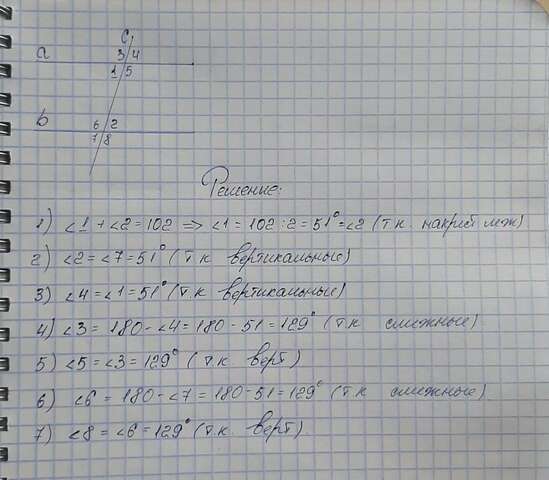 c
a 3 4
1 5
b 6 2
7 8
Решение:
1) ∠1 + ∠2 = 102 ⇒ ∠1 = 102 : 2 = 51° = ∠2 (т.к. накрест леж)
2) ∠2 = ∠7 = 51° (т.к вертикальные)
3) ∠4 = ∠1 = 51° (т.к вертикальные)
4) ∠3 = 180 - ∠4 = 180 - 51 = 129° (т.к смежные)
5) ∠5 = ∠3 = 129° (т.к. верт)
6) ∠6 = 180 - ∠7 = 180 - 51 = 129° (т.к смежные)
7) ∠8 = ∠6 = 129° (т.к. верт).